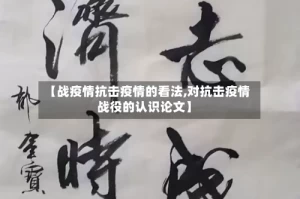 【战疫情抗击疫情的看法,对抗击疫情
战役的认识论文】
志
濟
時